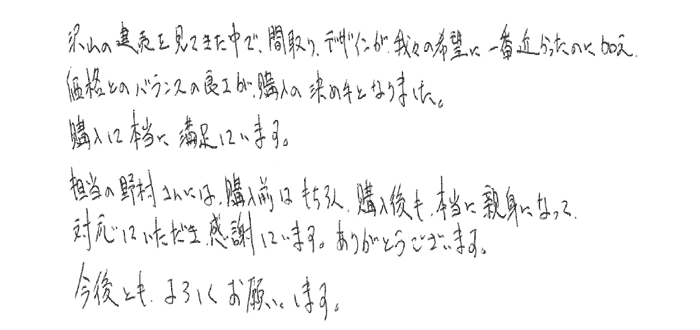 沢山の建売を見てきた中で、間取り、デザインが、我々の希望に一番近かったのに加え、
価格とのバランスの良さが、購入の決め手となりました。
購入に本当に満足しています。
担当の野村さんには、購入前はもちろん、購入後も、本当に親身になって、
対応していただき、感謝しています。ありがとうございます。
今後とも、よろしくお願いします。